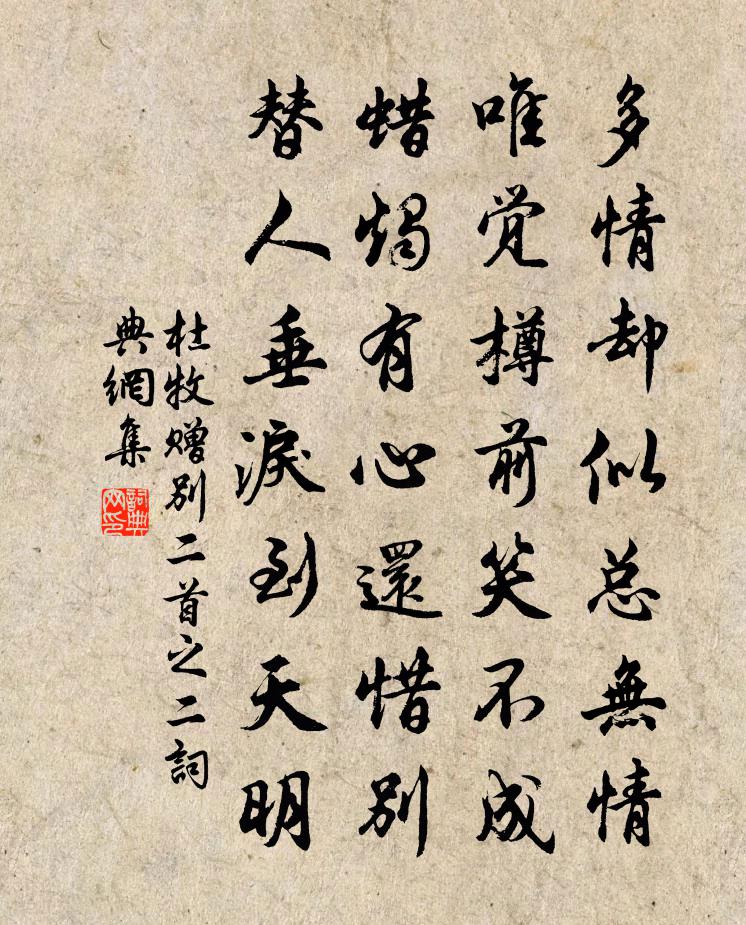 多情却似总無情
唯覚樽前笑不成
蜡燭有心還惜别
替人垂淚到天明
杜牧赠别二首之二詞
典網集
詞典
网印